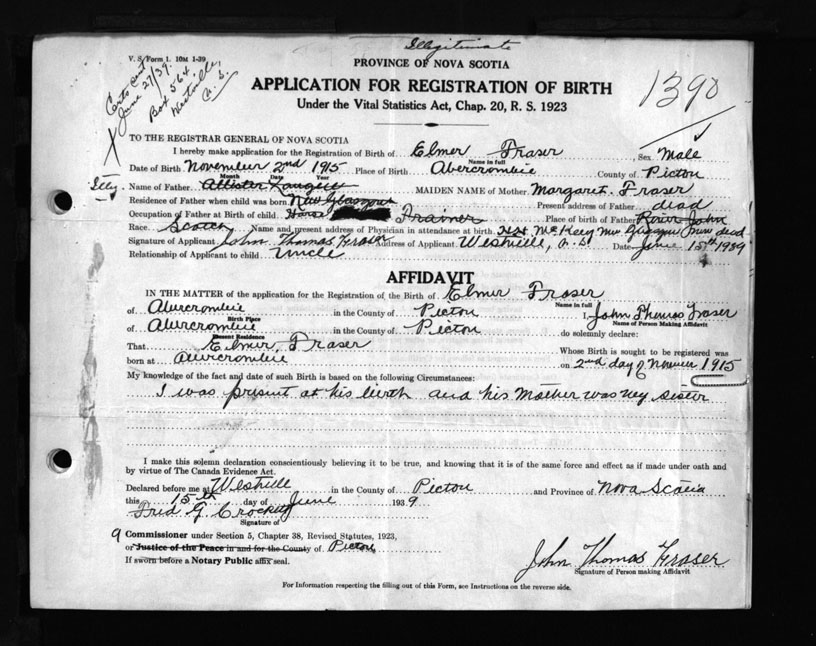 Illegitimate
V. S. Form 1. 10M 1-39
PROVINCE OF NOVA SCOTIA
APPLICATION FOR REGISTRATION OF BIRTH
Under the Vital Statistics Act, Chap. 20, R. S. 1923
1390
Certs sent
June 27/39
Box 564
Westville,
N. S.
TO THE REGISTRAR GENERAL OF NOVA SCOTIA
I hereby make application for the Registration of Birth of Elmer Fraser Sex Male
Name in full
Date of Birth November 2nd 1915 Place of Birth Abercrombie County of Pictou
Month Date Year
Illy. Name of Father Allister MAIDEN NAME of Mother Margaret Fraser
Residence of Father when child was born New Glasgow Present address of Father dead
Occupation of Father at Birth of child Horse Trainer Place of birth of Father River John
Race Scotch Name and present address of Physician in attendance at birth McKay New Glasgow Now dead
Signature of Applicant John Thomas Fraser Address of Applicant Westville, N. S. Date June 15th 1939
Relationship of Applicant to child Uncle
AFFIDAVIT
IN THE MATTER of the application for the Registration of the Birth of Elmer Fraser
Name in full
of Abercrombie in the County of Pictou I, John Thomas Fraser
Birth Place Name of Person Making Affidavit
of Abercrombie in the County of Pictou do solemnly declare:
Present Residence
That Elmer Fraser Whose Birth is sought to be registered was
born at Abercrombie on 2nd day of November 1915
My knowledge of the fact and date of such Birth is based on the following Circumstances:
I was present at his birth and his Mother was my sister
I make this solemn declaration conscientiously believing it to be true, and knowing that it is of the same force and effect as if made under oath and
by virtue of The Canada Evidence Act.
Declared before me at Westville in the County of Pictou and Province of Nova Scotia
this 15th day of June 1939
Fred G. Crockett
Signature of
a Commissioner under Section 5, Chapter 38, Revised Statutes, 1923,
or Justice of the Peace in and for the County of Pictou
If sworn before a Notary Public affix seal.
John Thomas Fraser
Signature of Person making Affidavit
For Information respecting the filling out of this Form, see Instructions on the reverse side.